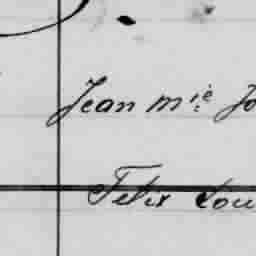 Jean mie Jo
Felix Lou